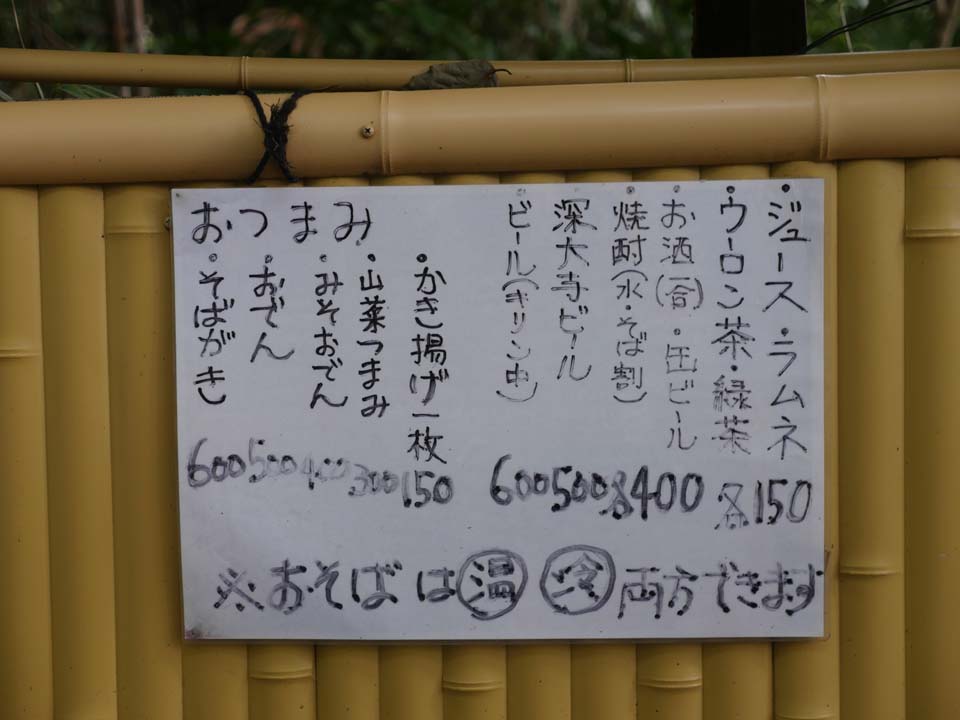 ・ジュース・ラムネ
・ウーロン茶・緑茶
各150
・お酒(一合)・缶ビール
・焼酎(水・そば割)
各400
深大寺ビール
500
・ビール(キリン中)
600
おつまみ
・かき揚げ一枚
150
・山菜つまみ
300
・みそおでん
400
・おでん
500
・そばがき
600
※おそばは温冷両方できます